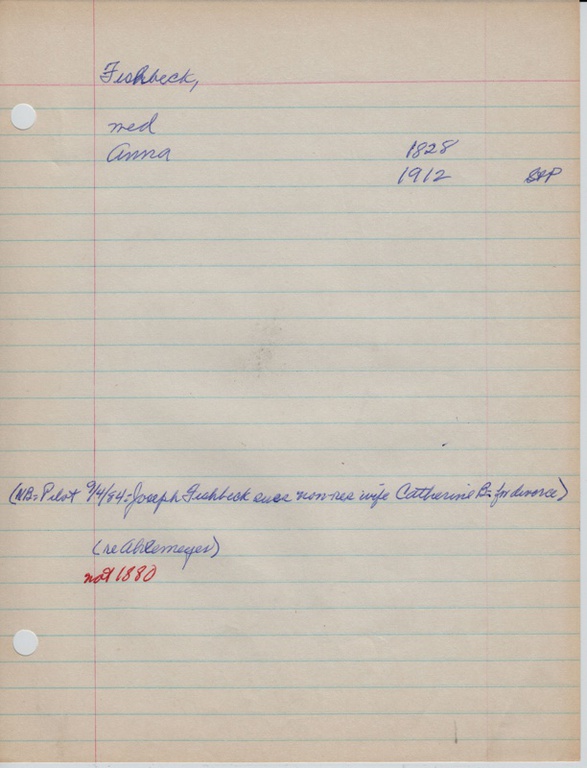 Fishbeck,
med
Anna 1828
1912
(NB = Pilot 9/4/84 = Joseph Fishbeck sues non-res wife Catherine B = for divorce)
(re Ahlemeyer)
not 1880